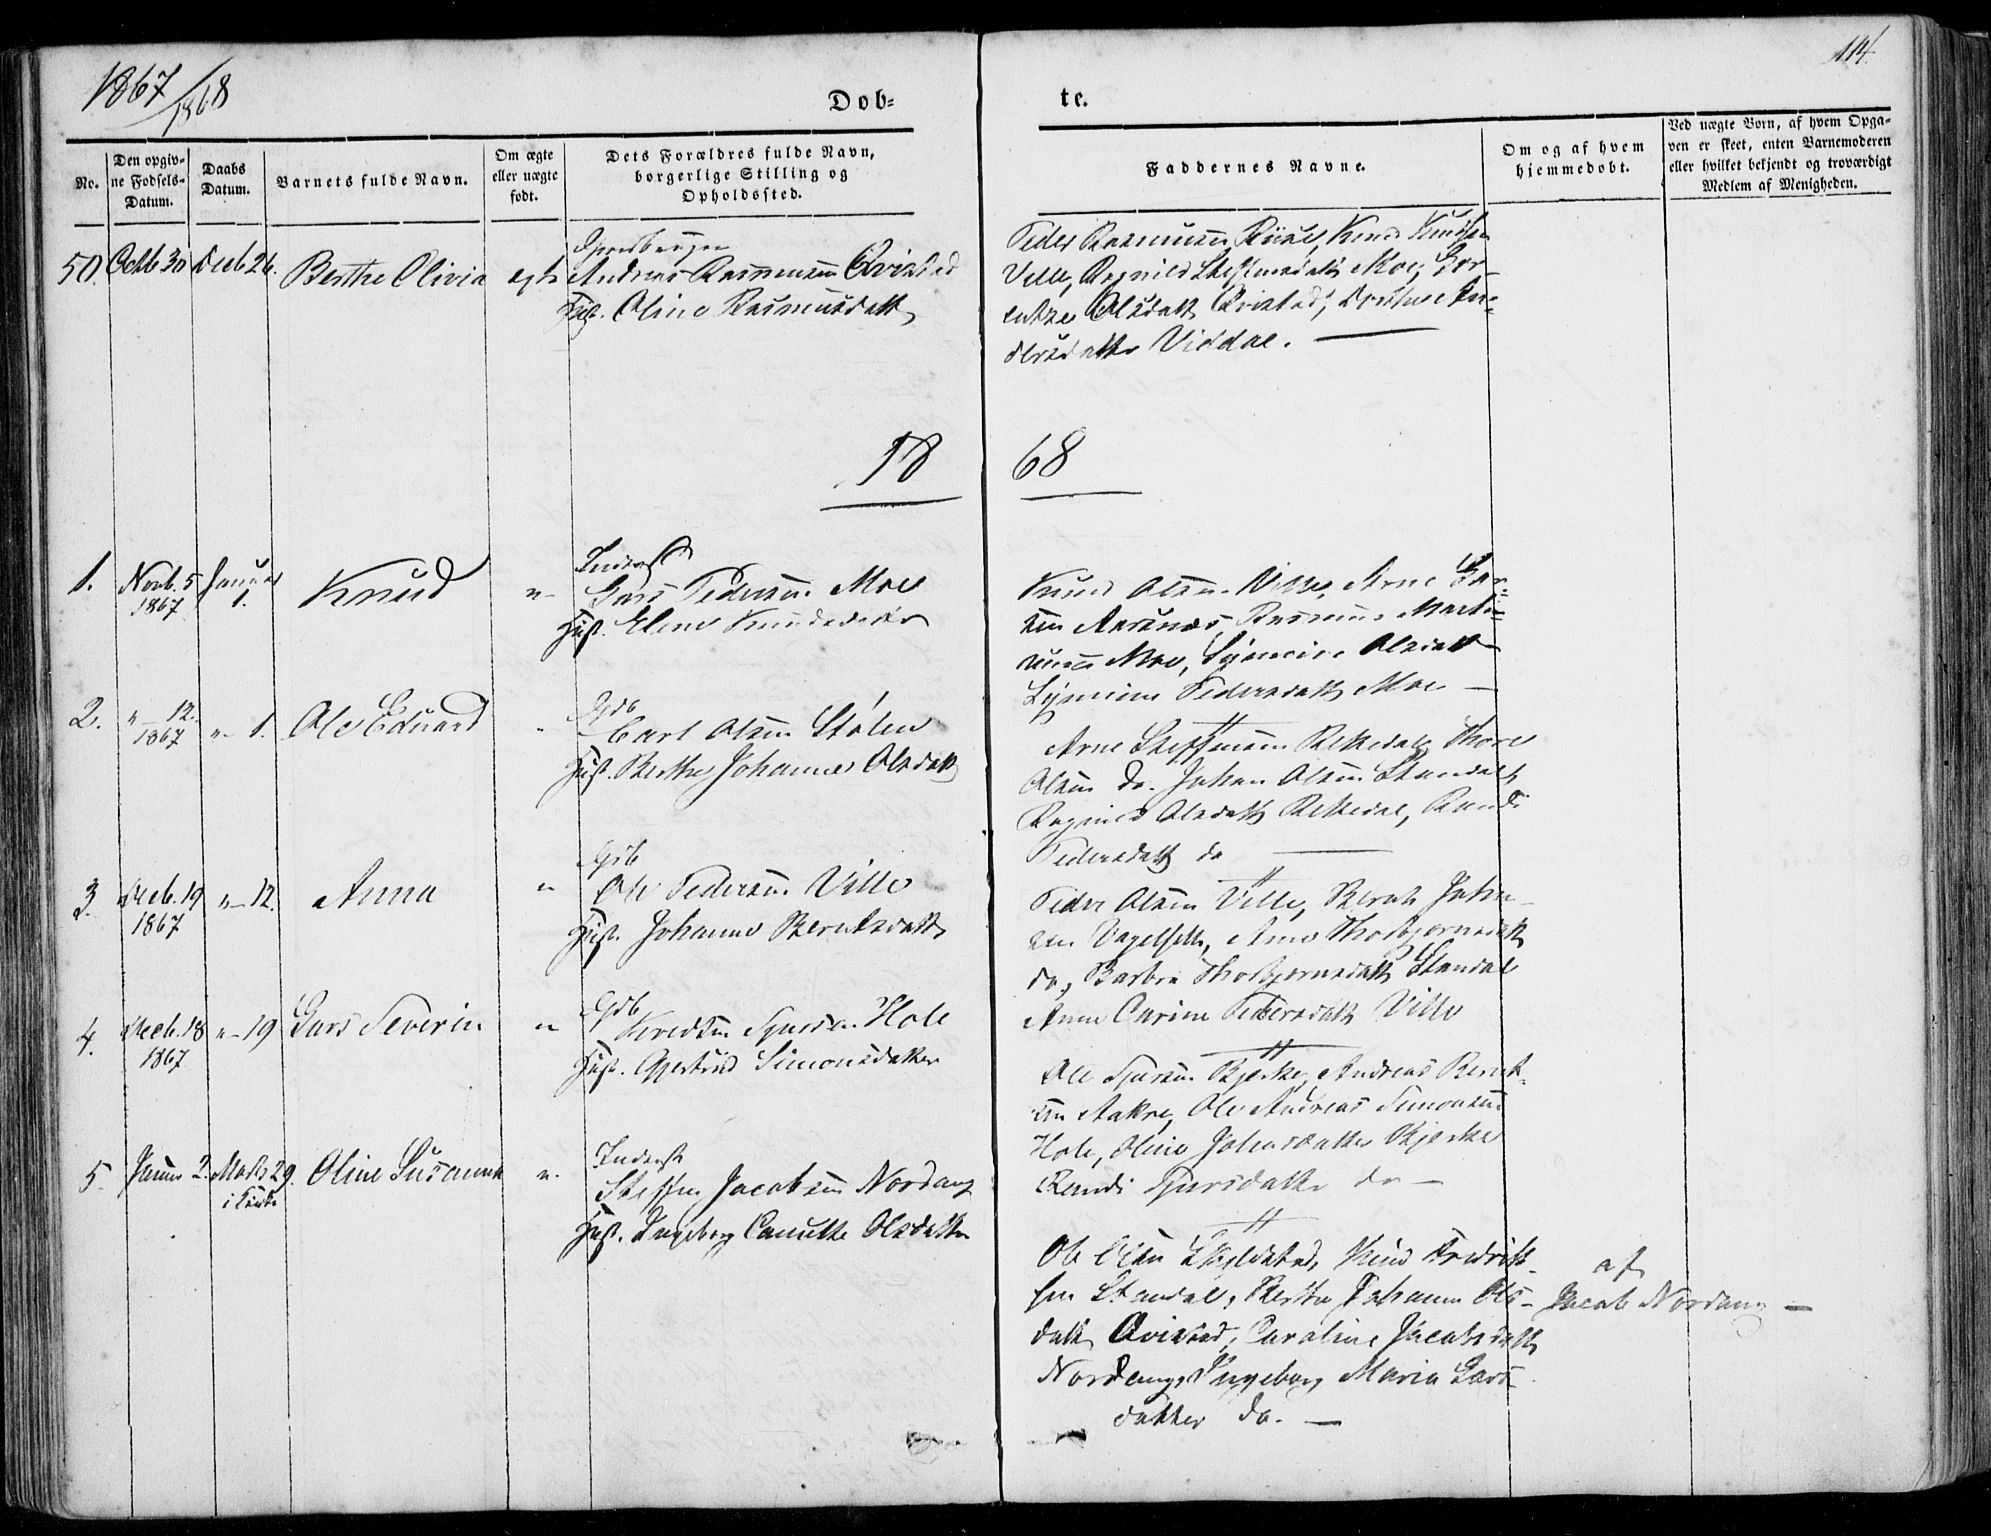 1867/1868
114.
Dob-
te.
No.
Den opgiv-
ne Fødsels-
Datum.
Daabs
Datum.
Barnets fulde Navn.
Om ægte
eller uægte
født.
Dets Forældres fulde Navn,
borgerlige Stilling og
Opholdssted.
Faddernes Navne.
Om og af hvem
hjemmedøbt.
Ved uægte Børn, af hvem Opga-
ven er skeet, enten Barnemoderen
eller hvilket bekjendt og troværdigt
Medlem af Menigheden.
50. Octb 30 Decb 26. Berthe Olivia
Andreas Rasmussen Qvistad
Hust. Oline Rasmusdatt
Peder Rasmussen Riise, Knud Knudsen
Ville, Steffensdatt Moe,
Olsdatt Qvistad,
Viddal.
18 68
1. Novb. 5 Januar Knud
1867 1.
Inderst
Lars Pedersen Moe
Hust. Eline Knudsdatter
Knud Olsen Ville, Arne Lar-
sen Aarsnes, Rasmus Marti-
Moe, Olsdatt
Pedersdatt Moe
2. " 12. " 1. Ole Eduard
1867
Gdb
Carl Olsen Stølen
Hust. Berthe Johanne Olsdatt
Arne Steffensen Rekkedal, Thore
Olsen do. Johan Olsen Standal,
Ragnild Olsdatt Rekkedal, Randi
Pedersdatt do
3. Decb. 19 " 12. Anna "
1867
Gdb
Ole Pedersen Ville
Hust. Johanne Berntsdatt
Peder Olsen Ville, Bernt Johan-
sen Vagelsett, Anne Thorbjørnsdatt
do, Barbra Thorbjørnsdatt Standal
Anne Carine Pedersdatt Ville
4. Decb. 18 " 19 Lars Severin "
1867
Gdb
Hole
Hust. Gjertrud Simonsdatter
Ole Sjursen Bjerke, Andreas Bernt-
sen Aakre, Ole Andreas Simonsen
Hole, Oline Johansdatter Bjerke
Randi Sjursdatter do
5. Januar 2. Marts 29. Oline Susanna "
i Kirke
Inderst
Steffen Jacobsen Nordang
Hust. Ingeborg Olsdatter
Ole Olsen Skylstad, Knud Fredrik-
sen Standal, Berthe Johanne Ols-
datt Qvistad, Caroline Jacobsdatt
Nordang, Ingeborg Maria Lars-
datter do.
af
Jacob Nordang